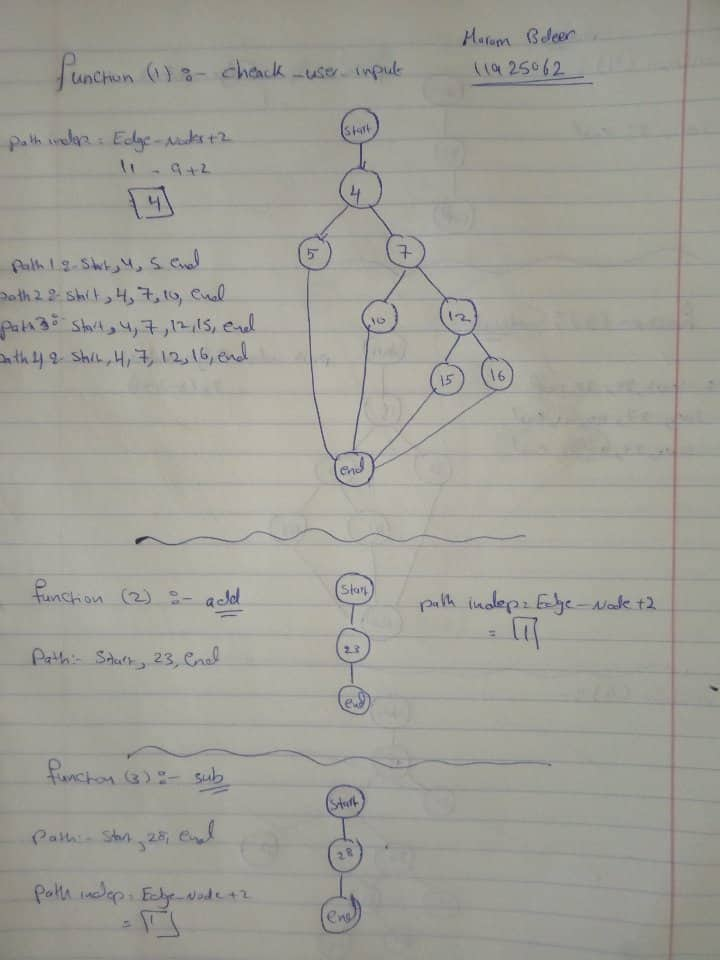 Haram Bdeer
11925062
function (1) :- cheack_user_input
path indep = Edge - Nodes + 2
11 - 9 + 2
4
Path 1 :- Start, 4, 5 end
Path 2 :- Start, 4, 7, 10, end
Path 3 :- Start, 4, 7, 12, 15, end
Path 4 :- Start, 4, 7, 12, 16, end
Start
4
5
7
10
12
15
16
end
function (2) :- add
Path :- Start, 23, end
Start
23
end
path indep = Edge - Node + 2
= 1
function (3) :- sub
Path :- Start, 28, end
Path indep = Edge - Node + 2
= 1
Start
28
end